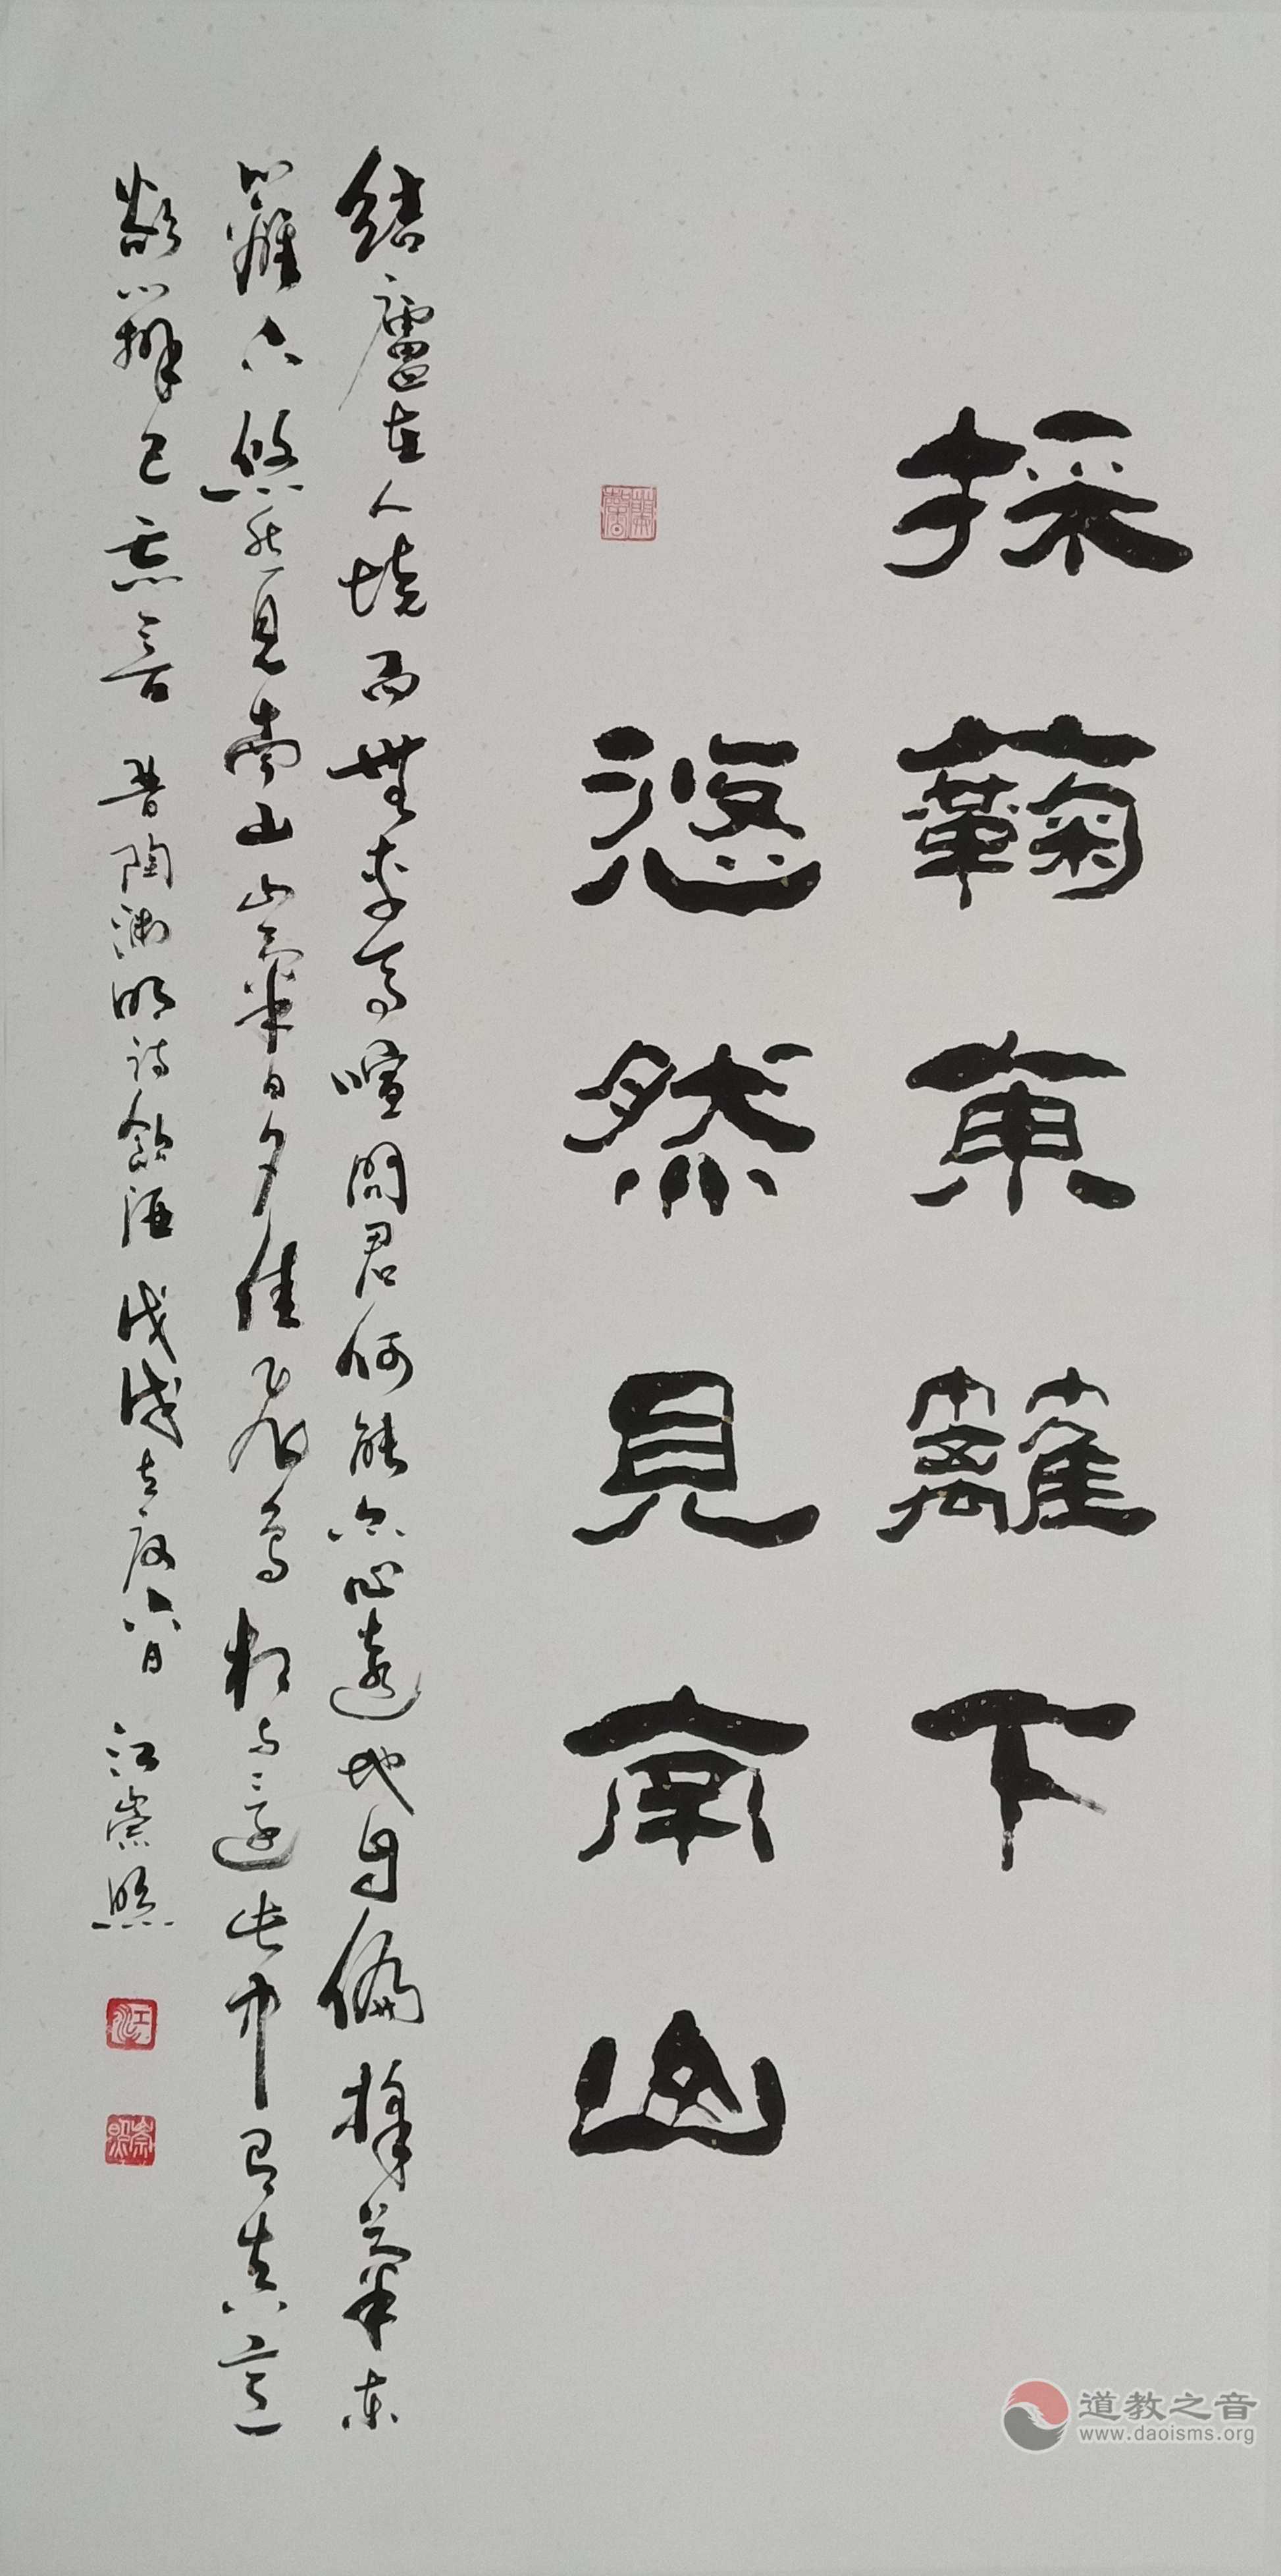 採蘜東籬下
悠然見南山
結廬在人境而無車馬喧問君何能尔心遠地自偏採菊東
籬下悠然見南山山氣日夕佳飛鳥相與還此中有真意
欲辨已忘言 晉陶淵明詩飲酒 戊戌立夏六日 江崇照
江
崇照
道教之音
www.daoisms.org